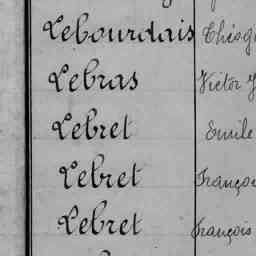 Lebourdais
Lebras Victor
Lebret Emile
Lebret
Lebret François